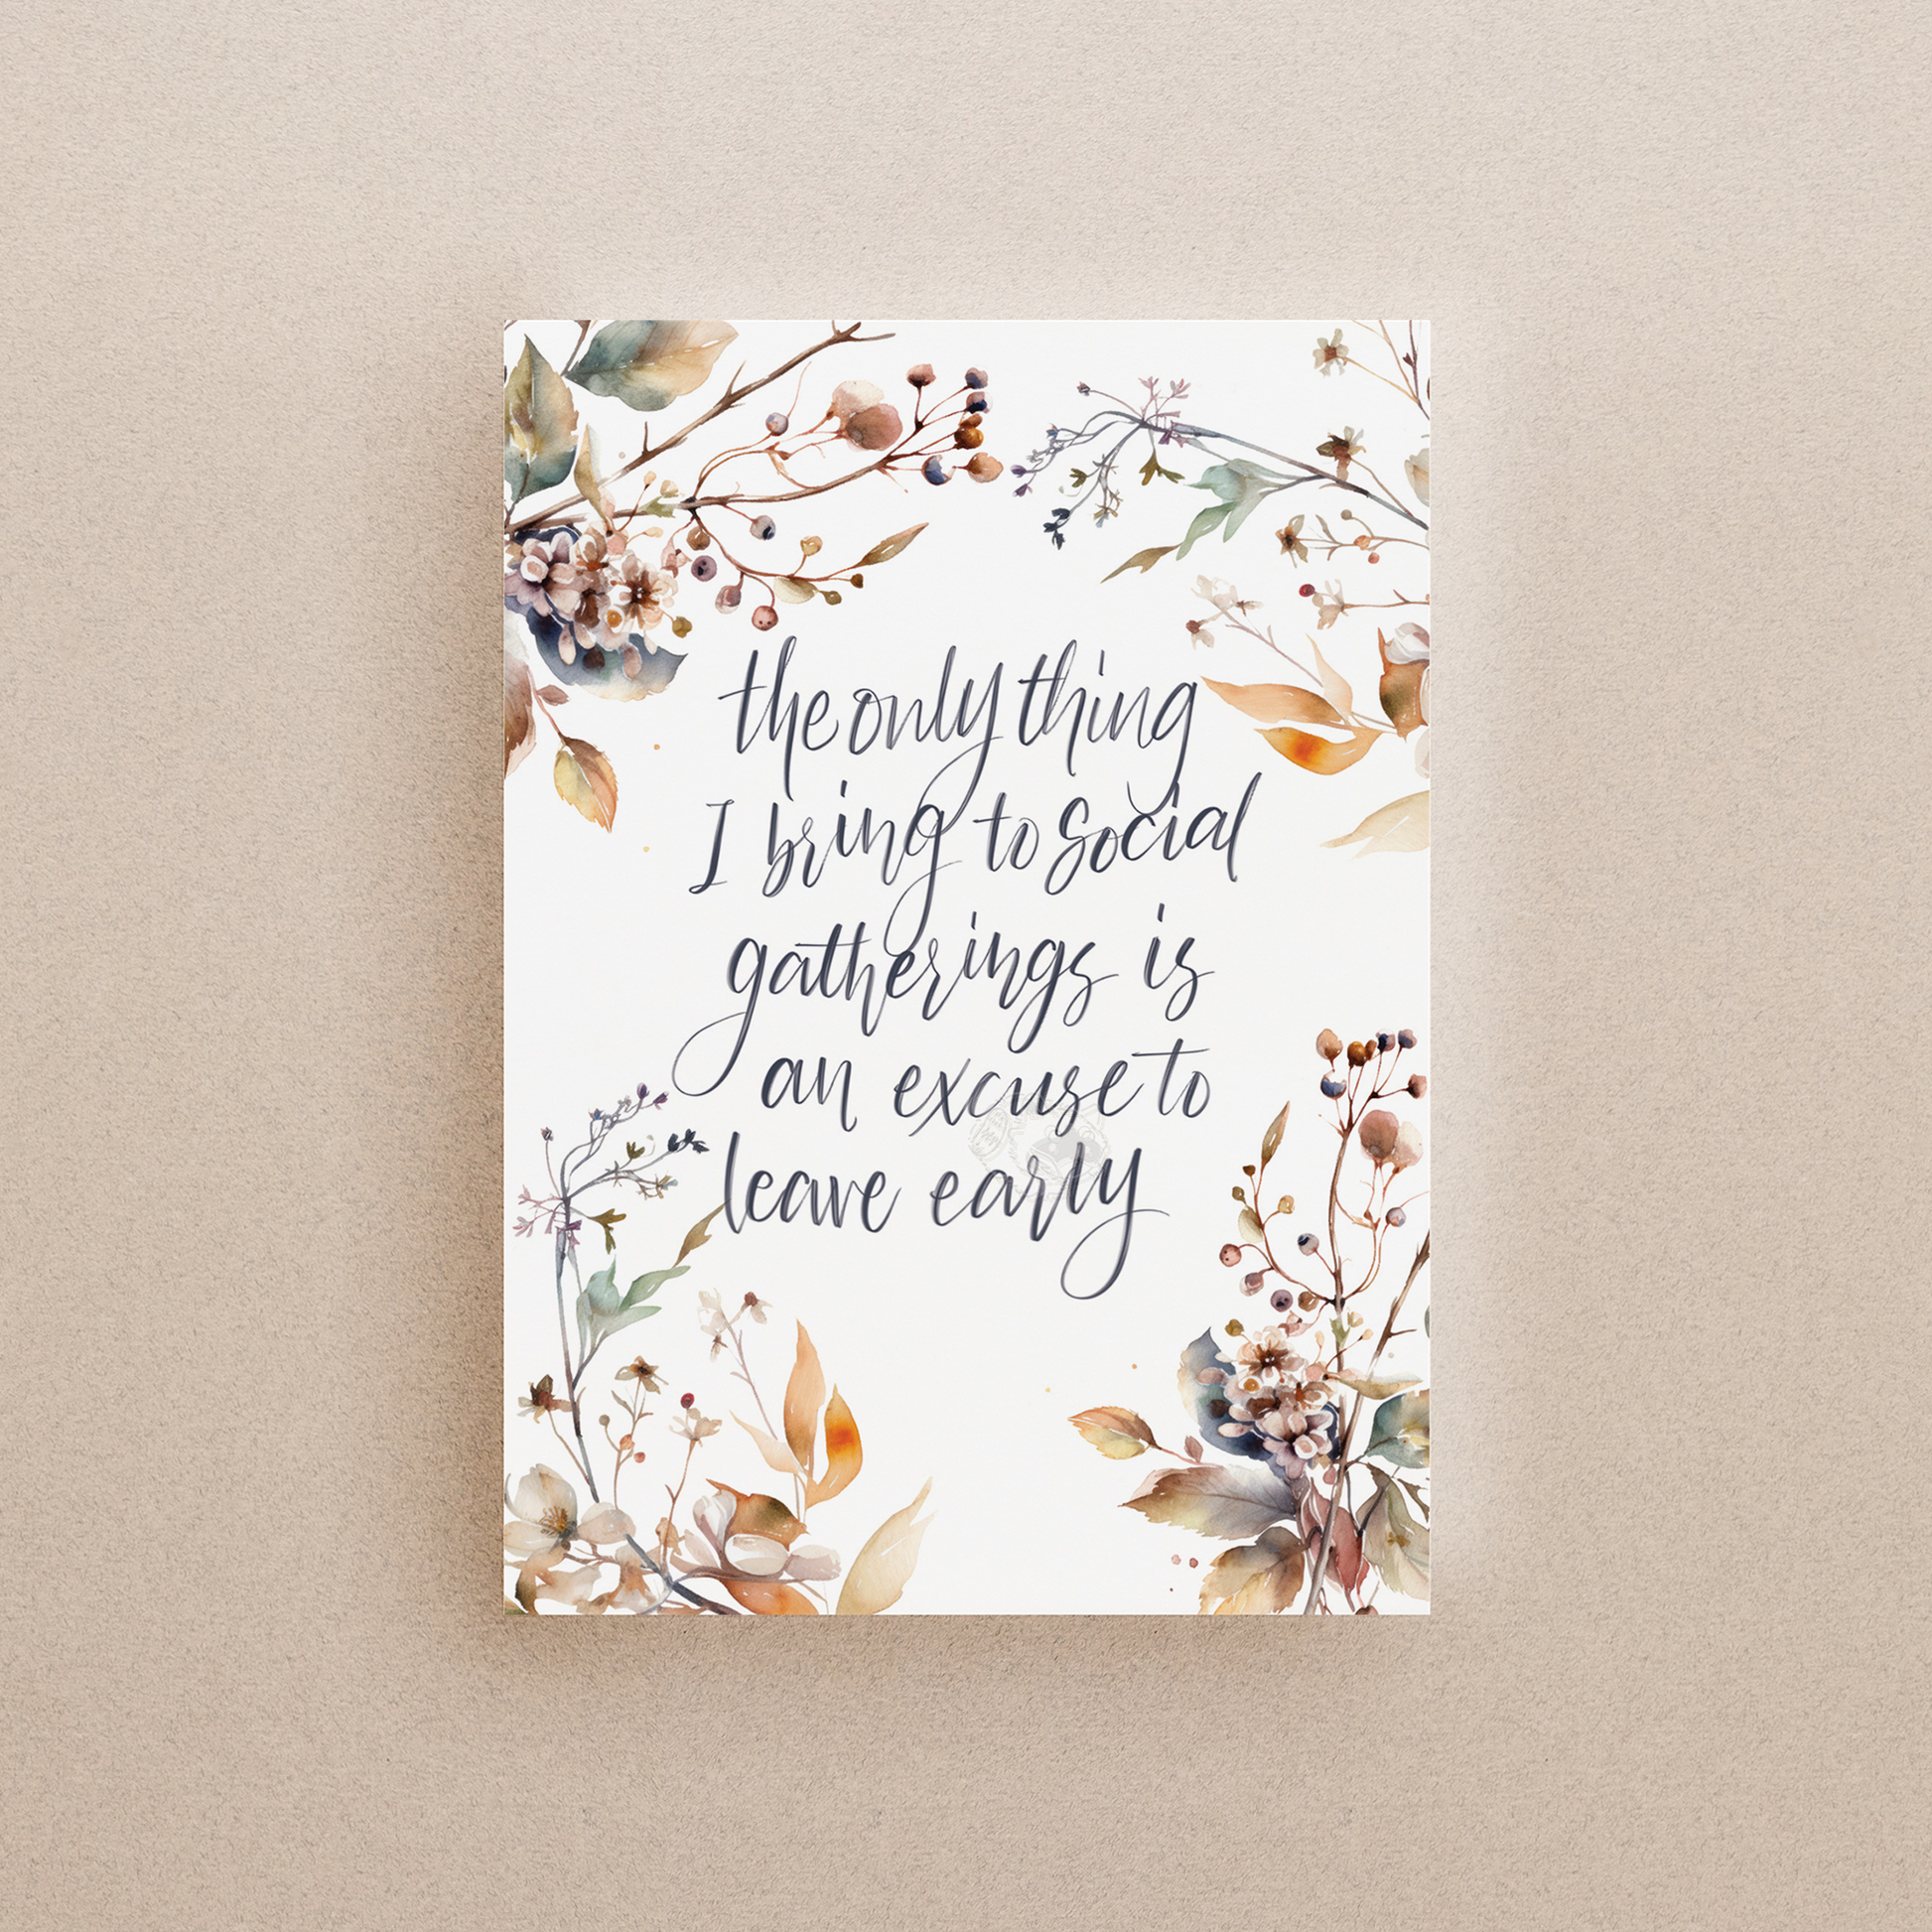 the only thing
I bring to social
gatherings is
an excuse to
leave early